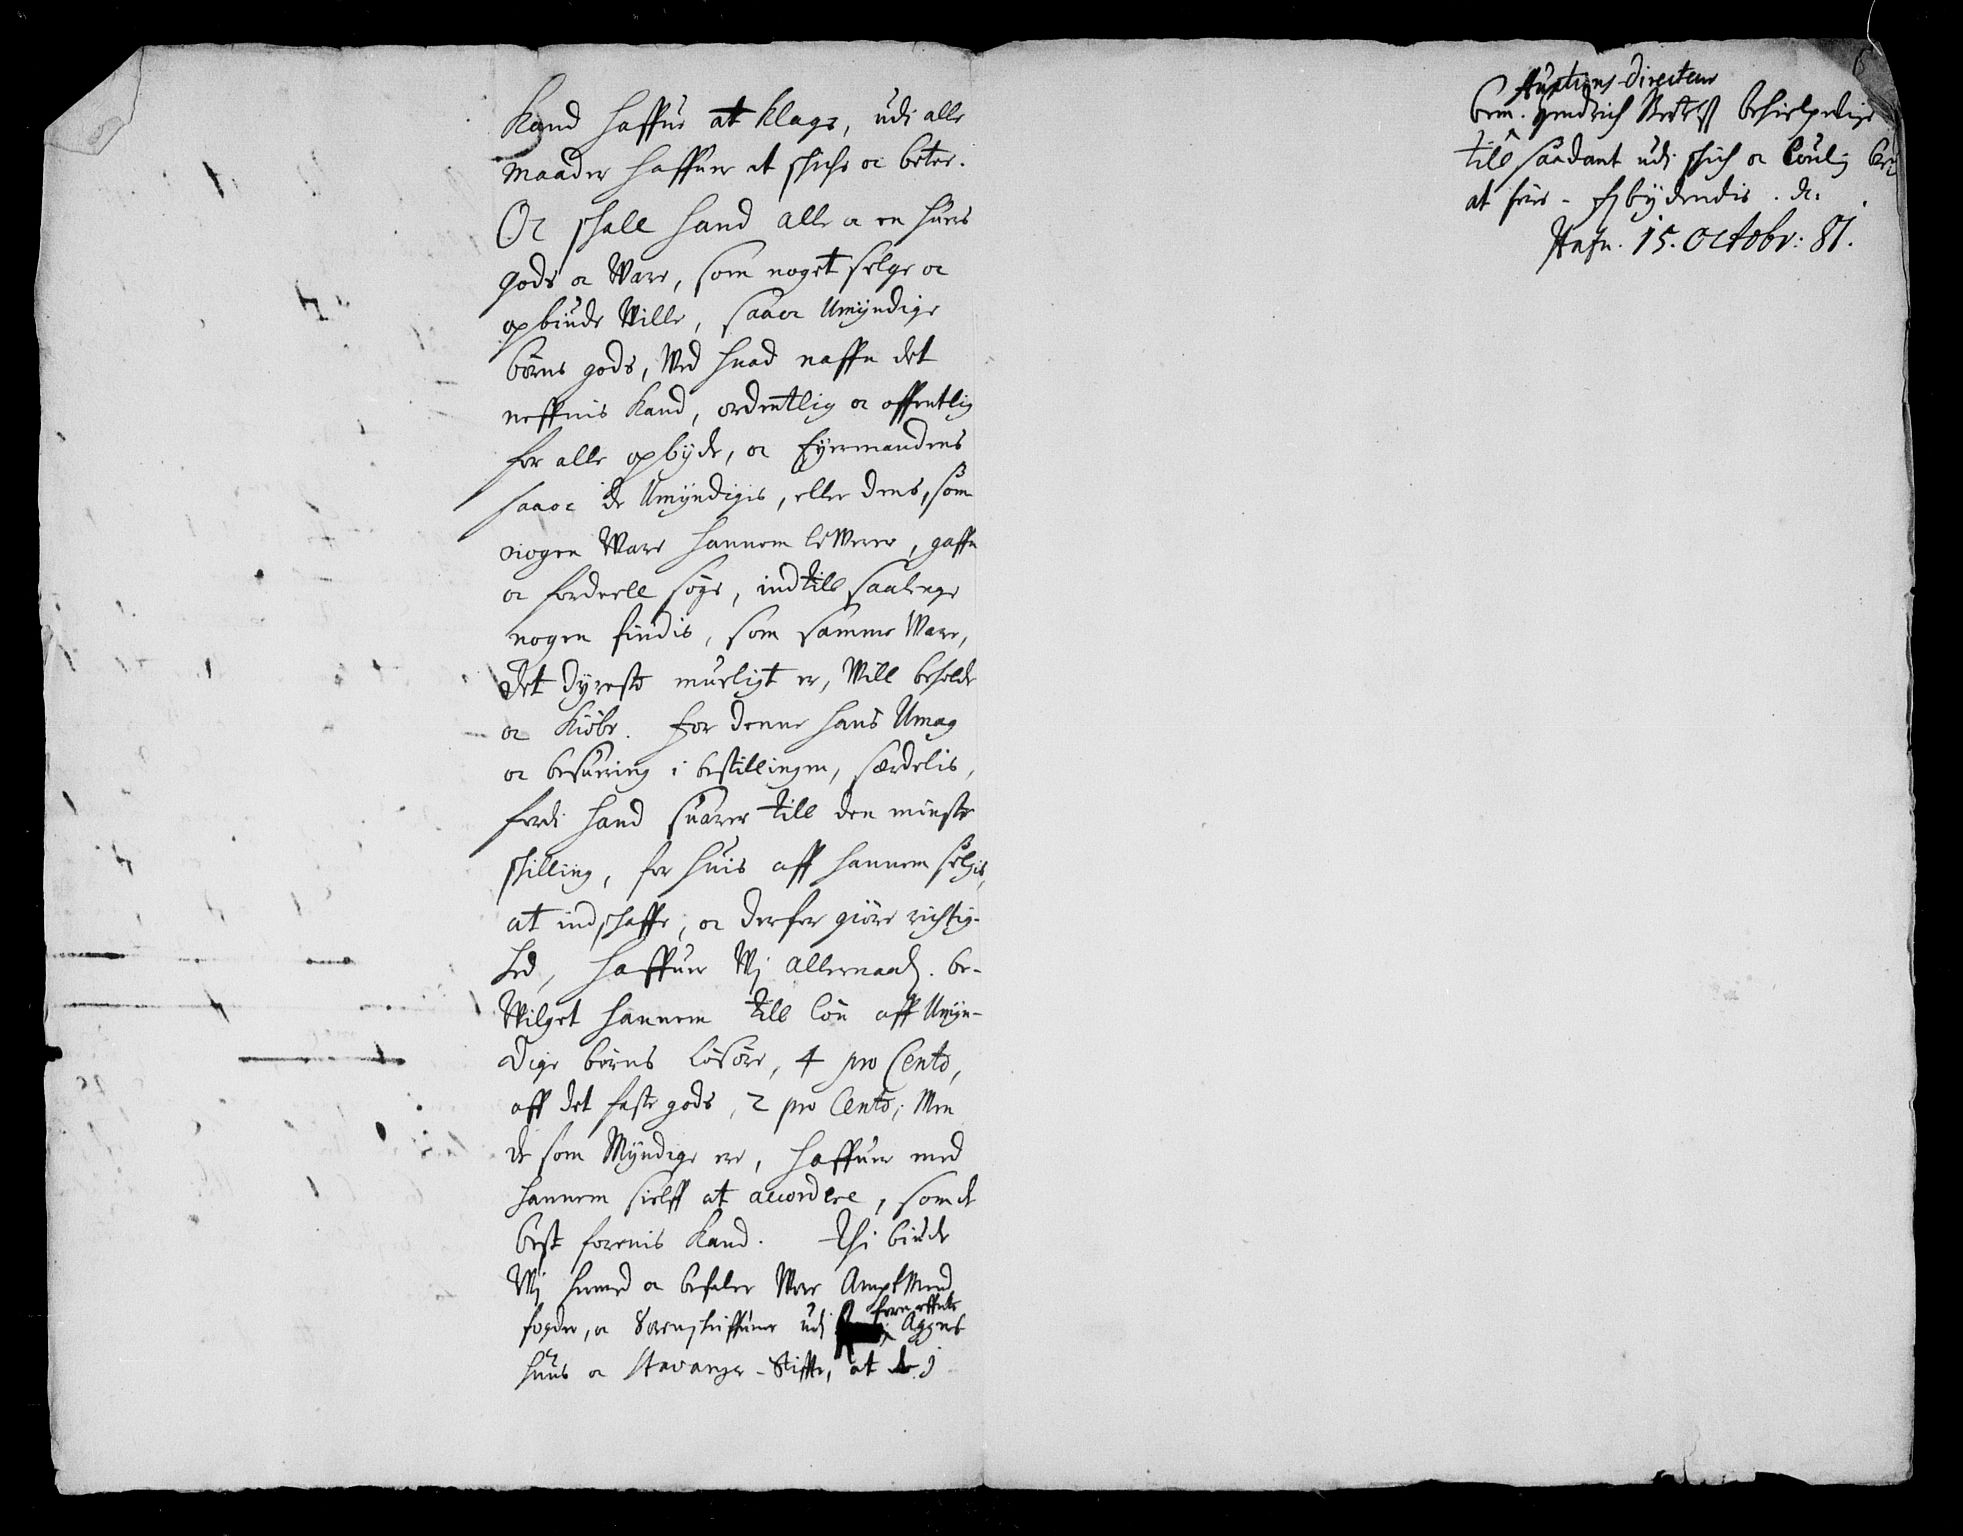 Kand haffue at klage, udi alle
maader haffuer at skicke oc beter.
Oc skall hand alle oc en huers
gods oc Ware, som noget selge oc
opbiude Wille, saa oc Umÿndige
børns gods, Wed huad naffn det
neffnis kand, ordentlig oc offentlig
for alle opbÿde, oc Eÿermandens
saa oc de Umÿndigis, eller dens, som
nogen Ware hannem leWerer, gaffn
oc fordeell søge, indtill saalenge
nogen findis, som samme Ware,
det dÿreste mueligt er, Will beholde
oc kiøbe. For denne hans Umag
oc besuering i bestillingen, særdelis,
fordi hand suarer till den minste
skilling, for huis aff hannem selgis,
at indskaffe, oc derfor giøre richtig-
hed, haffuer Wj allernaad. be-
Wilget hannem till løn aff Umÿn-
dige børns løsøre, 4 pro Cento,
aff det faste gods, 2 pro Cento; Men
de som Mÿndige ere, haffuer med
hannem sielff at accordere, som de
best forenis kand. Thi biude
Wj hermed oc befaler Wore AmptMend
fogder, oc Sorenskriffuere udi forneffnte Agers
huus oc Stavanger-Stifter, at de j
Auctions-Directeur
bem. Hendrich behielpelige
till saadant udi skich oc loulig
at føre. Forbÿdendis. etc.
Hafn. 15. Octobr: 81.